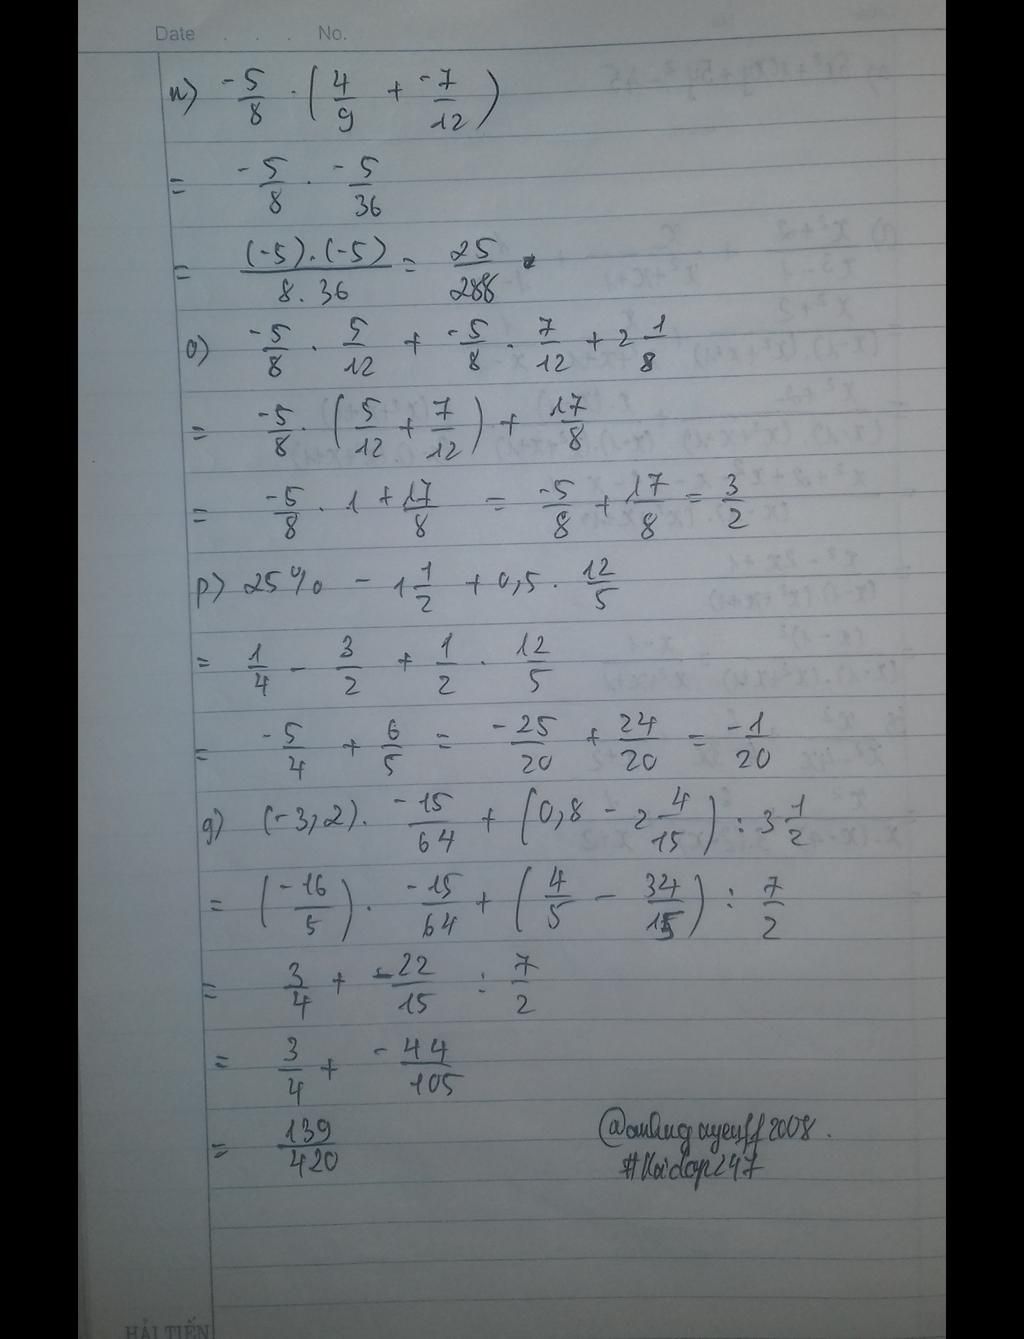 Date . . . No.
n) -5/8 . (4/9 + -7/12)
= -5/8 . -5/36
= (-5).(-5)/8.36 = 25/288
o) -5/8 . 5/12 + -5/8 . 7/12 + 2 1/8
= -5/8 . (5/12 + 7/12) + 17/8
= -5/8 . 1 + 17/8 = -5/8 + 17/8 = 3/2
p) 25% - 1 1/2 + 0,5 . 12/5
= 1/4 - 3/2 + 1/2 . 12/5
= -5/4 + 6/5 = -25/20 + 24/20 = -1/20
q) (-3,2) . -15/64 + (0,8 - 2 4/15) : 3 1/2
= (-16/5) . -15/64 + (4/5 - 34/15) : 7/2
= 3/4 + -22/15 : 7/2
= 3/4 + -44/105
= 139/420
#Hoidap247
HẢI TIẾN